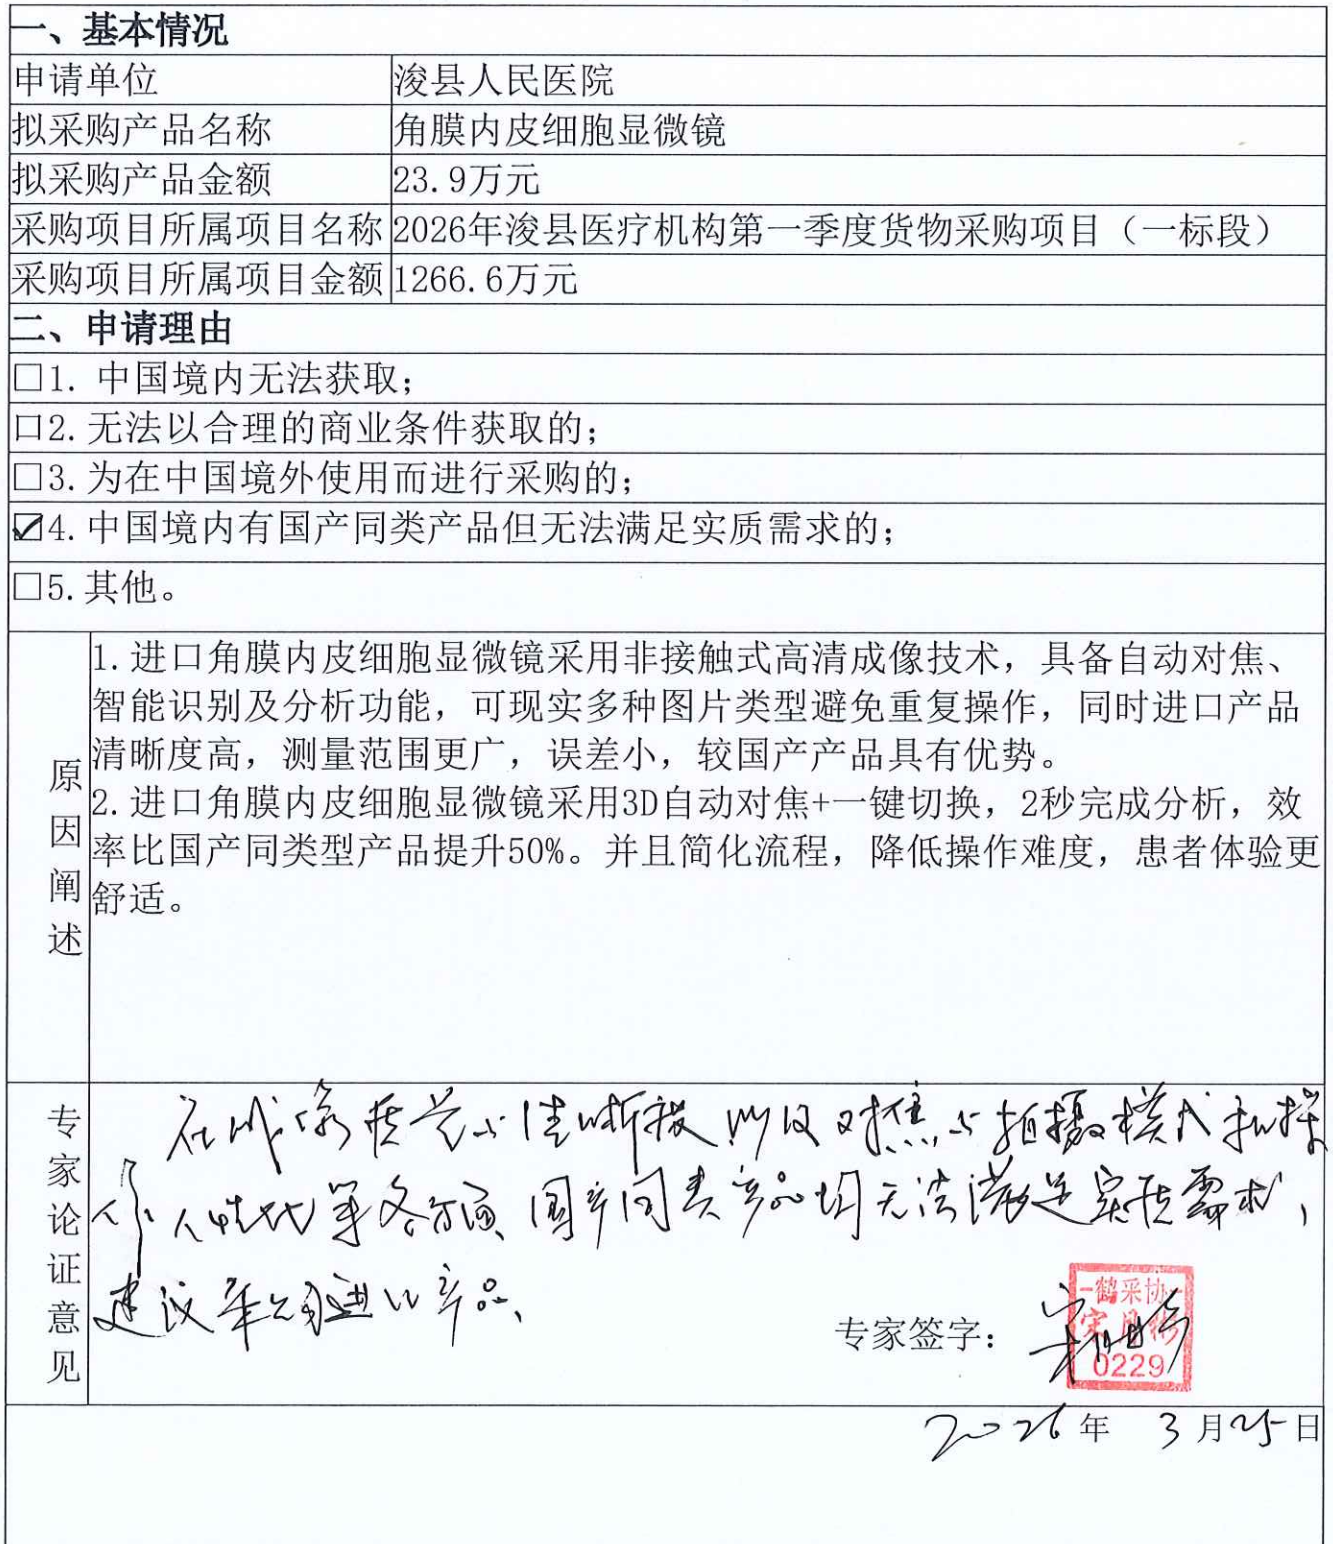 一、基本情况
申请单位 浚县人民医院
拟采购产品名称 角膜内皮细胞显微镜
拟采购产品金额 23.9万元
采购项目所属项目名称 2026年浚县医疗机构第一季度货物采购项目（一标段）
采购项目所属项目金额 1266.6万元
二、申请理由
□1. 中国境内无法获取；
□2. 无法以合理的商业条件获取的；
□3. 为在中国境外使用而进行采购的；
☑4. 中国境内有国产同类产品但无法满足实质需求的；
□5. 其他。
原因阐述
1. 进口角膜内皮细胞显微镜采用非接触式高清成像技术，具备自动对焦、
智能识别及分析功能，可现实多种图片类型避免重复操作，同时进口产品
清晰度高，测量范围更广，误差小，较国产产品具有优势。
2. 进口角膜内皮细胞显微镜采用3D自动对焦+一键切换，2秒完成分析，效
率比国产同类型产品提升50%。并且简化流程，降低操作难度，患者体验更
舒适。
专家论证意见
在成像质量 清晰度以及对焦 拍摄模式和操
作人性化等各方面，国产同类产品均无法满足实质需求，
建议采购进口产品、
专家签字：
鹤采协
0229
2026年 3月25日